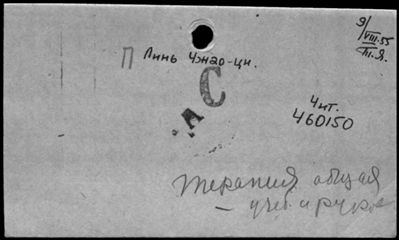 9/VIII-55
П Линь Чжао-ци.
С
А
Чит.
460150
Терапия общая
— учеб. и руков